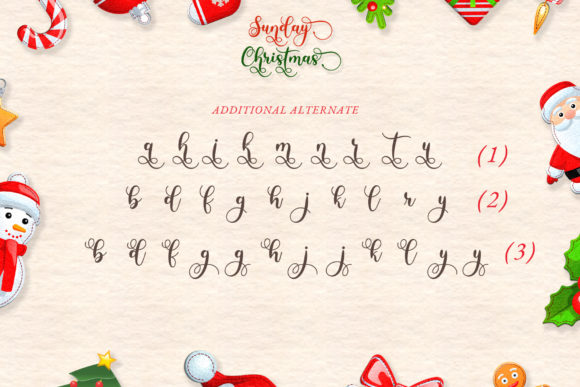 Sunday
Christmas
ADDITIONAL ALTERNATE
a h i k m n r t u (1)
b d f g h j k l r y (2)
b d f g g h j j k l y y (3)